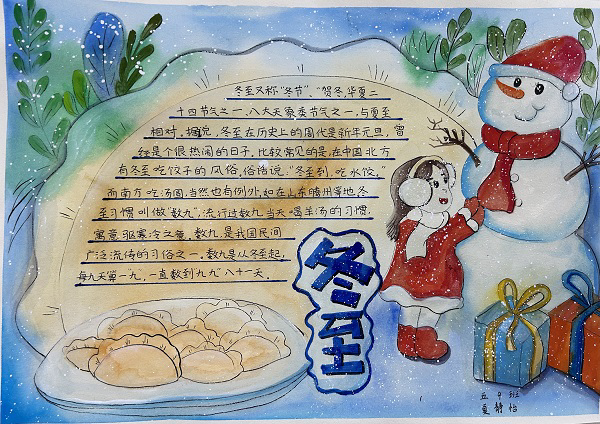 冬至又称"冬节"、"贺冬，华夏二
十四节气之一、八大天象类节气之一，与夏至
相对。据说，冬至在历史上的周代是新年元旦，曾
经是个很热闹的日子。比较常见的是，在中国北方
有冬至吃饺子的风俗。俗话说："冬至到，吃水饺，"
而南方吃汤圆，当然也有例外，如在山东滕州等地冬
至习惯叫做"数九"，流行过数九当天喝羊汤的习惯，
寓意驱寒冷之意。数九是我国民间
广泛流传的习俗之一。数九是从冬至起，
每九天算一九，一直数到"九九"八十一天。
冬至
五 9 班
夏静怡